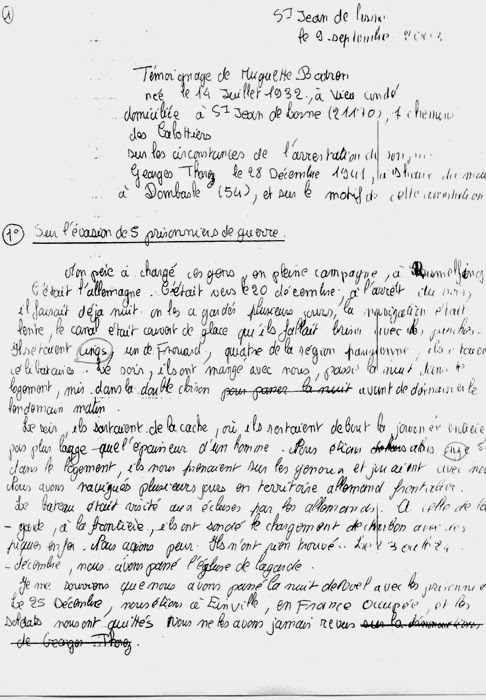 ①
St Jean de Losne
le 9 septembre
Témoignage de Muguette Bodron
née le 14 Juillet 1932, à Vieu condé
domiciliée à St Jean de Losne (21170), 7 chemin
des Calottiers
sur les circonstances de l'arrestation de son
Georges Thorez le 28 Décembre 1941
à Dombasle (54), et sur le motif de cette arrestation
1° Sur l'évasion de 5 prisonniers de guerre.
Mon père a chargé ces gens, en pleine campagne, à
C'était l'allemagne. C'était vers le 20 décembre, à l'arrêt du
il faisait déjà nuit. on les a gardés plusieurs jours, la navigation était
lente, le canal était couvert de glace qu'il fallait briser avec des
Ils étaient cinqs, un de Frouard, quatre de la région parisienne, ils
Le soir, ils ont mangé avec nous, passé la nuit dans le
logement, mis dans la double cloison pour passer la nuit avant de démarrer le
lendemain matin.
Le soir, ils sortaient de la cache, où ils restaient debout la journée entière
pas plus large que l'épaisseur d'un homme. Nous étions
dans le logement, ils nous prenaient sur les genoux et jouaient avec nous
Nous avons navigués plusieurs jours en territoire allemand frontalier.
Le bateau était visité aux écluses par les allemands. A celle de la
-garde, à la frontière, ils ont sondé le chargement de charbon avec des
piques en fer. Nous avions peur. Ils n'ont rien trouvé.
-décembre, nous avons passé l'écluse de lagarde.
Je me souviens que nous avons passé la nuit de Noël avec les prisonniers
Le 25 Décembre, nous étions à Einville, en France occupée, et les
soldats nous ont quittés Nous ne les avons jamais revus
de Georges Thorez.